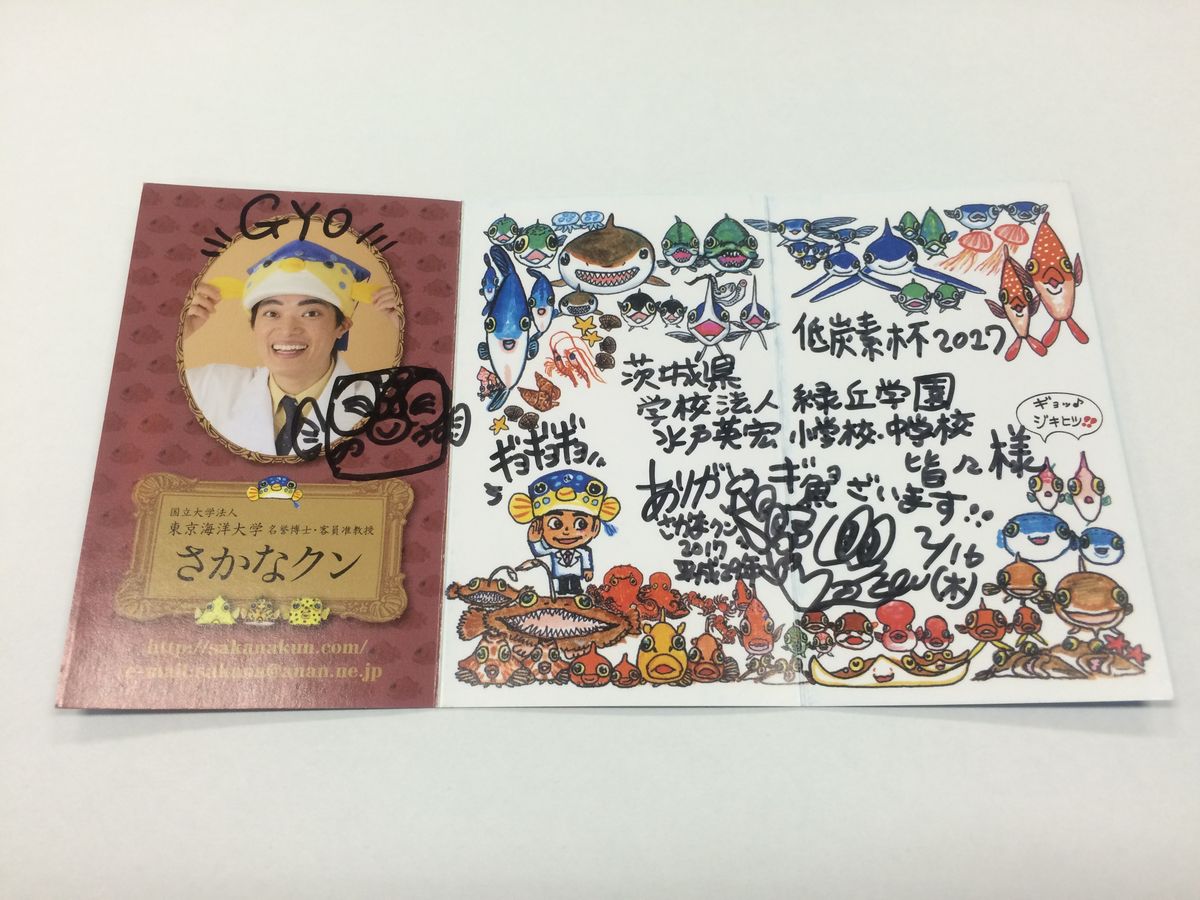 GYO
国立大学法人
東京海洋大学 名誉博士・客員准教授
さかなクン
http://sakanakun.com/
e-mail:sakana@anan.ne.jp
低炭素杯2017
茨城県
学校法人 緑丘学園
水戸英宏 小学校・中学校
皆々様
ギョッ♪
ジキヒツ!!
ギョギョギョ
ありがとうギョ魚ざいます!!
さかなクン
2017
平成29年
2/16
(木)